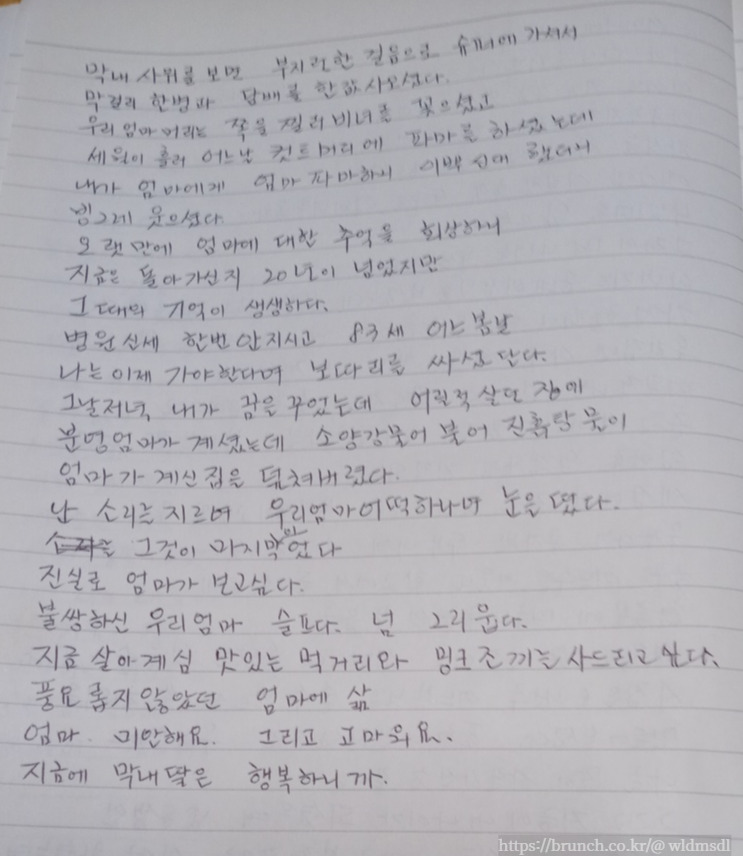 막내 사위를 보면 부지런한 걸음으로 슈퍼에 가셔서
막걸리 한병과 담배를 한갑 사오셨다.
우리 엄마 머리는 쪽을 찔러 비녀를 꽂으셨고
세월이 흘러 어느날 컷트머리에 파마를 하셨는데
내가 엄마에게 엄마 파마하니 이쁘 했더니
빙그레 웃으셨다.
오랫만에 엄마에 대한 추억을 회상하니
지금은 돌아가신지 20년이 넘었지만
그때의 기억이 생생하다.
병원신세 한번 안지시고 83세 어느 봄날
나는 이제 가야한다며 보따리를 싸셨단다.
그날저녁 내가 꿈을 꾸었는데 어린적 살던 집에
분명엄마가 계셨는데 소양강물이 불어 진흙탕 물이
엄마가 계신집을 덮쳐버렸다.
난 소리를 지르며 우리엄마 어떡하나며 눈을 떴다.
그것이 마지막이었다
진실로 엄마가 보고싶다.
불쌍하신 우리엄마 슬프다. 넘 그리웁다.
지금 살아계심 맛있는 먹거리와 밍크조끼는 사드리고 싶다.
풍요롭지 않았던 엄마에 삶
엄마. 미안해요. 그리고 고마워요.
지금에 막내딸은 행복하니까.
https://brunch.co.kr/@wldmsdl